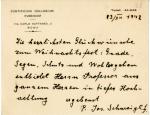 PONTIFICIUM COLLEGIUM
ROMA
23/XII 1942
Die herzlichsten Glückwünsche
zum Weihnachtsfest: Gnade,
Segen, Schutz und Wohlergehen
entbietet Herrn Professor aus
ganzem Herzen in tiefer Hoch-
achtung ergebenst
P. Jos.